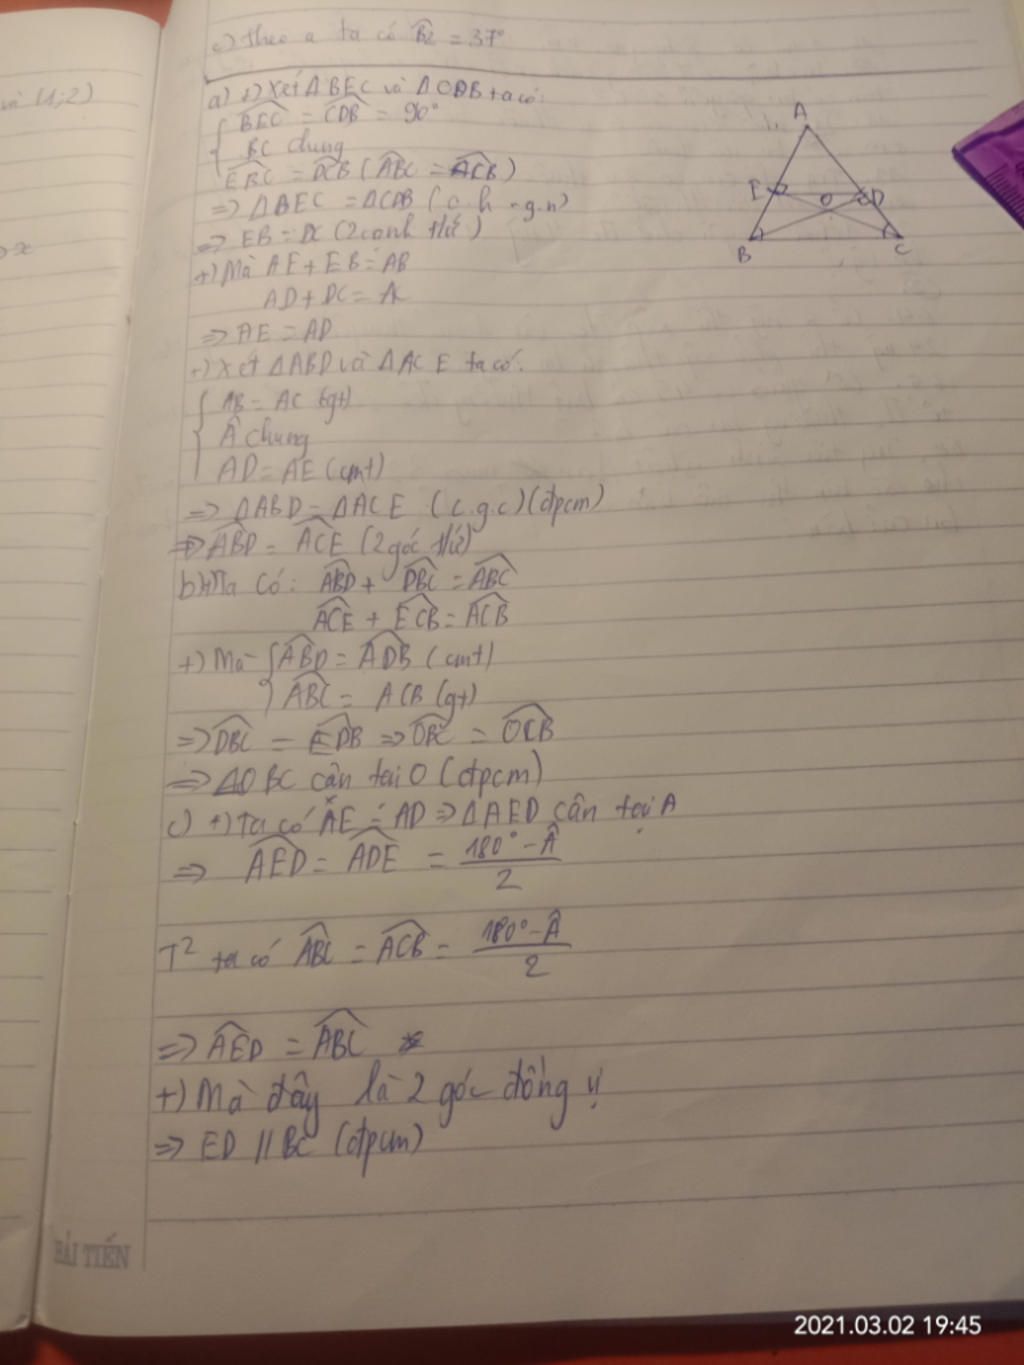 c) theo a ta có B̂2 = 37°
và (1;2)
a) +) Xét ΔBEC và ΔCDB ta có:
BEC = CDB = 90°
BC chung
EBC = DCB (ABC = ACB)
=> ΔBEC = ΔCDB (c.h - g.n)
=> EB = DC (2 cạnh t/ứ)
+) Mà AE + EB = AB
AD + DC = AC
=> AE = AD
+) Xét ΔABD và ΔACE ta có:
AB = AC (gt)
Â chung
AD = AE (cmt)
=> ΔABD = ΔACE (c.g.c) (đpcm)
=> ABD = ACE (2 góc t/ứ)
b) +) Ta có: ABD + DBC = ABC
ACE + ECB = ACB
+) Mà ABD = ADB (cmt)
ABC = ACB (gt)
=> DBC = EDB => OBC = OCB
=> ΔOBC cân tại O (đpcm)
c) +) Ta có AE = AD => ΔAED cân tại A
=> AED = ADE = 180° - Â / 2
T² ta có ABC = ACB = 180° - Â / 2
=> AED = ABC
+) Mà đây là 2 góc đồng vị
=> ED // BC (đpcm)
A
E
O
D
B
C
HẢI TIẾN
2021.03.02 19:45